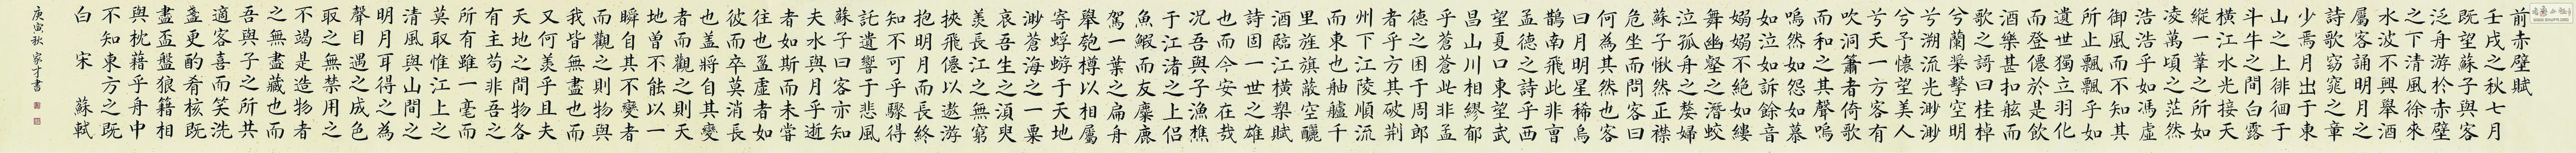 前赤壁賦
壬戌之秋七月
既望蘇子與客
泛舟於赤壁
之下清風徐來
水波不興舉酒
屬客誦明月之
詩歌窈窕之章
少焉月出于東
山之上徘徊于
斗牛之間白露
橫江水光接天
縱一葦之所如
凌萬頃之茫然
浩浩乎如馮虛
御風而不知其
所止飄飄乎如
遺世獨立羽化
而登僊於是飲
酒樂甚扣舷而
歌之謌曰桂棹
兮蘭槳擊空明
兮溯流光渺渺
兮予懷望美人
兮天一方客有
吹洞簫者倚歌
而和之其聲嗚
嗚然如怨如慕
如泣如訴餘音
嫋嫋不絕如縷
舞幽壑之潛蛟
泣孤舟之嫠婦
蘇子愀然正襟
危坐而問客曰
何為其然也客
曰月明星稀烏
鵲南飛此非曹
孟德之詩乎西
望夏口東望武
昌山川相繆郁
乎蒼蒼此非孟
德之困于周郎
者乎方其破荊
州下江陵順流
而東也舳艫千
里旌旗蔽空釃
酒臨江橫槊賦
詩固一世之雄
也而今安在哉
况吾與子漁樵
于江渚之上侶
魚鰕而友麋鹿
駕一葉之扁舟
舉匏樽以相屬
寄蜉蝣于天地
渺蒼海之一粟
哀吾生之須臾
羨長江之無窮
挾飛僊以遨游
抱明月而長終
知不可乎驟得
託遺響于悲風
蘇子曰客亦知
夫水與月乎逝
者如斯而未嘗
往也盈虛者如
彼而卒莫消長
也蓋將自其變
者而觀之則天
地曾不能以一
瞬自其不變者
而觀之則物與
我皆無盡也而
又何羨乎且夫
天地之間物各
有主苟非吾之
所有雖一毫而
莫取惟江上之
清風與山間之
明月耳得之為
聲目遇之成色
取之無禁用之
不竭是造物者
之無盡藏也而
吾與子之所共
適客喜而笑洗
盞更酌肴核既
盡盃盤狼籍相
與枕藉乎舟中
不知東方之既
白 宋 蘇軾
庚寅秋 家才書